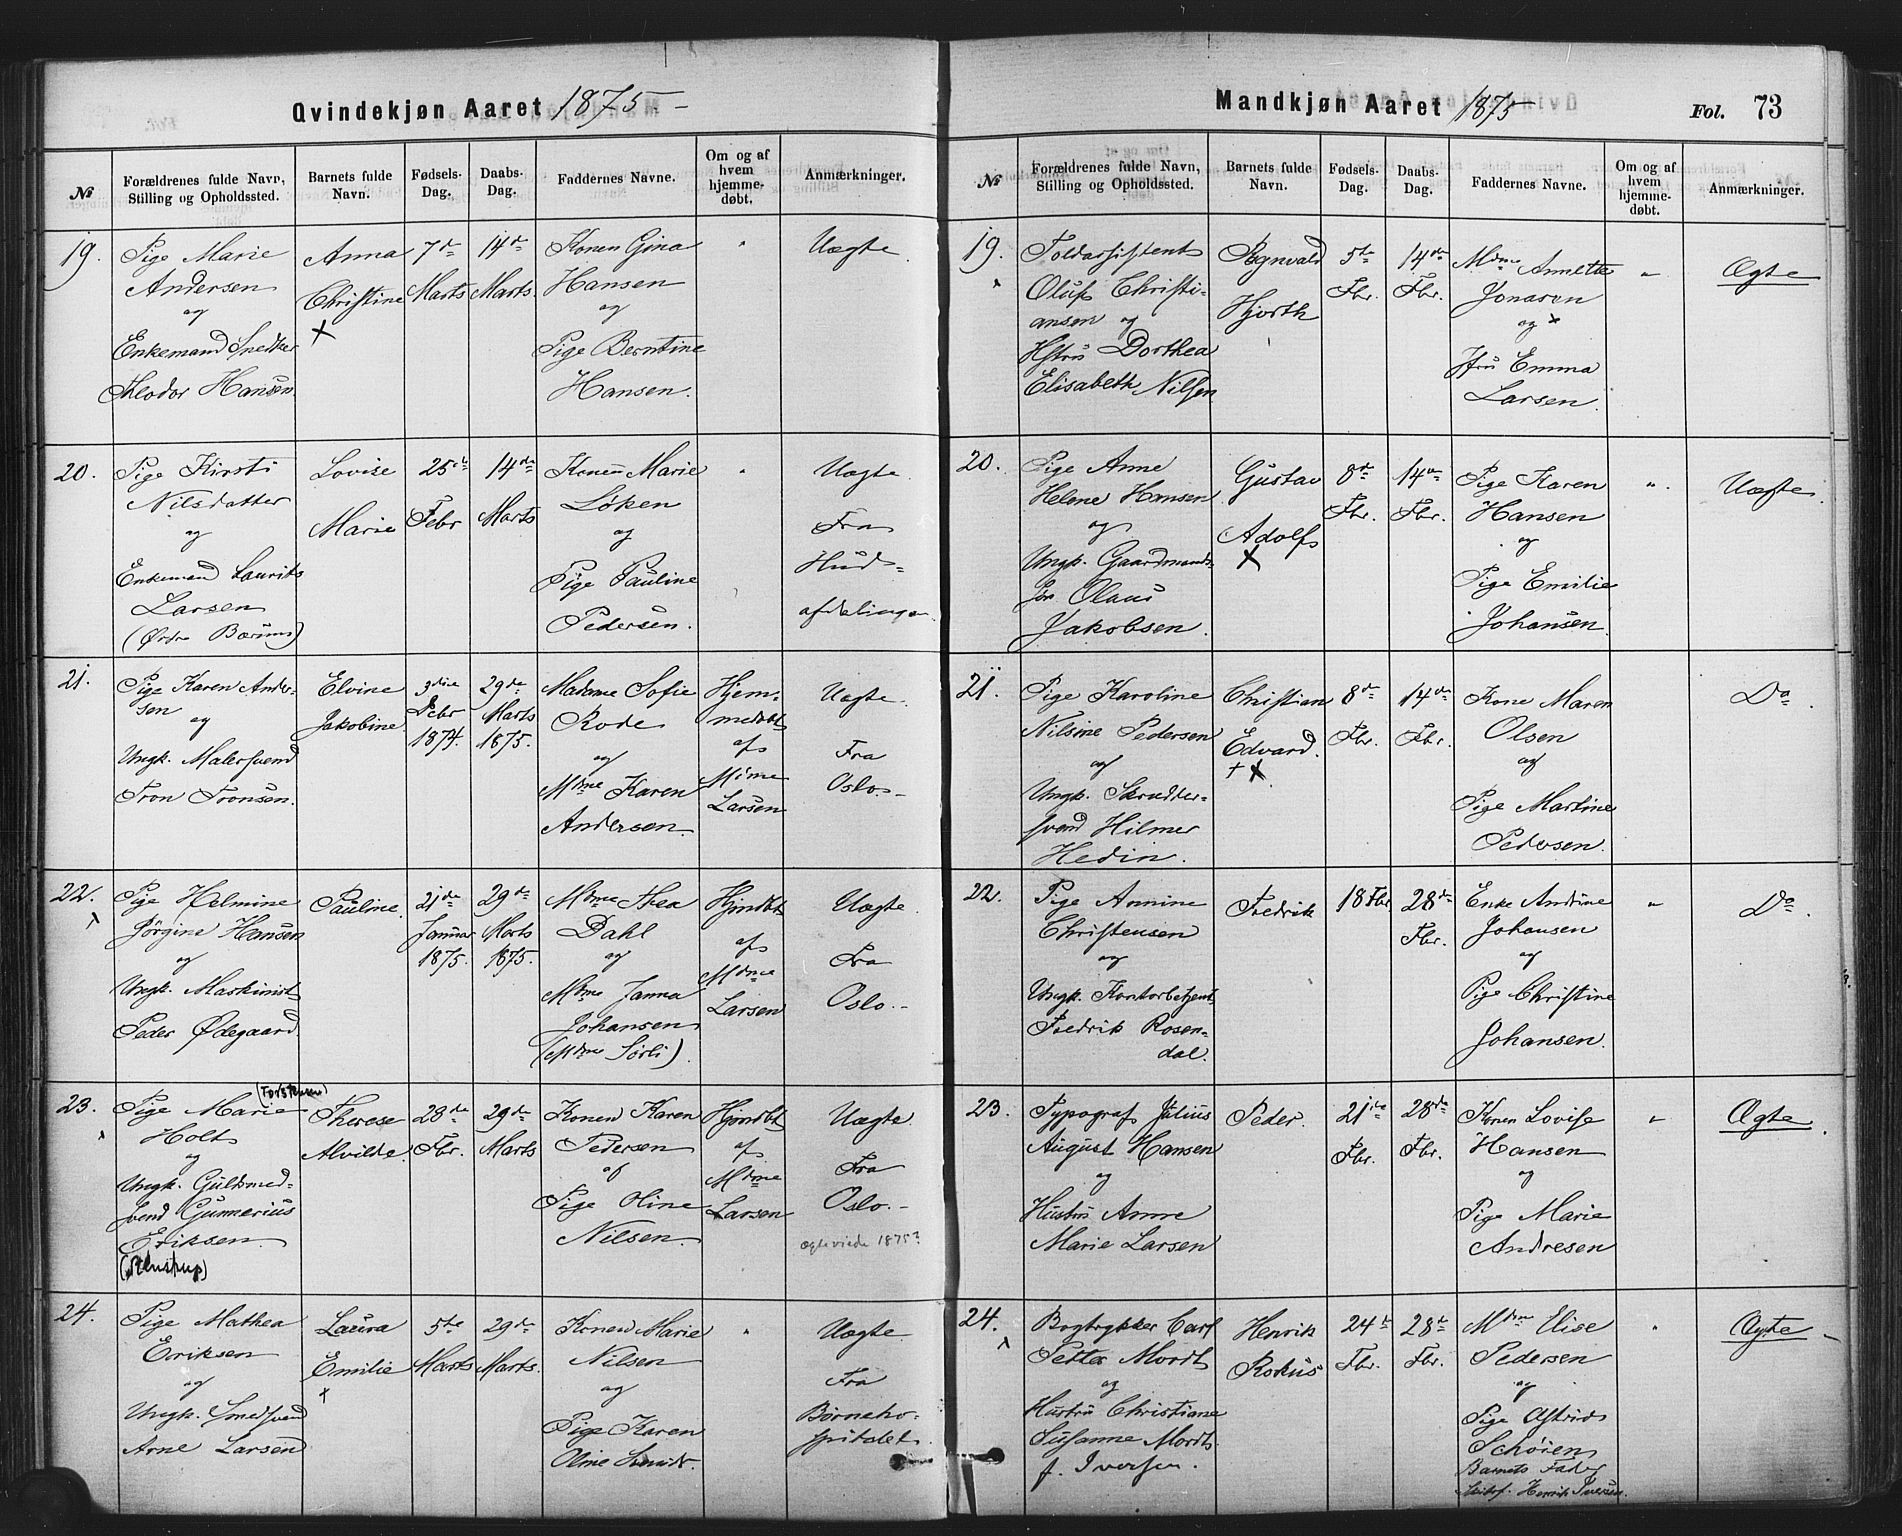 Qvindekjøn Aaret 1875
№
Forældrenes fulde Navn,
Stilling og Opholdssted.
Barnets fulde
Navn.
Fødsels-
Dag.
Daabs-
Dag.
Faddernes Navne.
Om og af
hvem
hjemme-
døbt.
Anmærkninger.
19.
Pige Marie
Andersen
og
Enkemand Snedker
Theodor Hansen.
Anna
Christine
7de
Marts
14de
Marts.
Konen Gina
Hansen
og
Pige Berntine
Hansen.
"
Uægte.
20.
Pige Kirsti
Nilsdatter
og
Enkemand Laurits
Larsen
(Østre Bærum)
Lovise
Marie
25de
Febr
14de
Marts
Konen Marie
Løken
og
Pige Pauline
Pedersen.
"
Uægte.
Fra
Hud-
afdelingen.
21.
Pige Karen Ander-
sen
og
Ungk. Malersvend
Tron Tronsen.
Elvine
Jakobine.
3die
Debr
1874.
29de
Marts
1875.
Madame Sofie
Rode
og
Mdme Karen
Andersen.
Hjem-
medøbt
af
Mdme
Larsen
Uægte.
Fra
Oslo.-
22.
Pige Helmine
Jørgine Hansen
og
Ungk. Maskinist
Peder Ødegaard.
Pauline.
21de
Januar
1875.
29de
Marts
1875.
Mdme Thea
Dahl
og
Mdme Janna
Johansen
(Mdme Sørli).
Hjmdbt
af
Mdme
Larsen
Uægte.
Fra
Oslo.-
23.
Pige Marie
Holt
og
Ungk. Guldsmed-
svend Gunnerius
Eriksen.
Therese
Alvilde.
28de
Fbr.
29de
Marts
Konen Karen
Pedersen
af
Pige Oline
Nilsen.
Hjmdbt
af
Mdme
Larsen
Uægte.
Fra
Oslo.-
Ægteviede 1875?
24.
Pige Mathea
Eriksen
og
Ungk. Smedsvend
Arne Larsen
Laura
Emilie
5te
Marts
29de
Marts.
Konen Marie
Nilsen
og
Pige Karen
Oline
"
Uægte.
Fra
Børneho-
spitalet.
Mandkjøn Aaret 1875
Fol. 73
№
Forældrenes fulde Navn,
Stilling og Opholdssted.
Barnets fulde
Navn.
Fødsels-
Dag.
Daabs-
Dag.
Faddernes Navne.
Om og af
hvem
hjemme-
døbt.
Anmærkninger.
19.
Toldassistent
Oluf Christi-
ansen og
Hstru Dorthea
Elisabeth Nilsen
Ragnvald
Hjorth
5te
Fbr.
14de
Fbr.
Mdme Annette
Jonasen
og
Jfru Emma
Larsen.
"
Ægte
20.
Pige Anne
Helene Hansen
og
Ungk. Gaardmands-
søn Olaus
Jakobsen.
Gustav
Adolf
8de
Fbr.
14de
Fbr.
Pige Karen
Hansen
og
Pige Emilie
Johansen.
"
Uægte.
21.
Pige Karoline
Nilsine Pedersen
og
Ungk. Skrædder-
svend Hilmer
Hedin.
Christian
Edvard.
8de
Fbr.
14de
Fbr.
Kone Maren
Olsen
og
Pige Martine
Pedersen.
Do.
22.
Pige Annine
Christensen
og
Ungk. Kontorbetjent
Fredrik Rosen-
dal.
Fredrik
18 Fbr.
28de
Fbr.
Enke Andrine
Johansen
og
Pige Christine
Johansen.
"
Do.
23.
Typograf Julius
August Hansen
og
Hustru Anne
Marie Larsen
Peder.
21de
Fbr.
28de
Fbr.
Konen Lovise
Hansen
og
Pige Marie
Andresen
"
Ægte.
24.
Bogtrykker Carl
Petter Mordt
og
Hustru Christiane
Susanne Mordt
f. Iversen.
Henrik
Rokus
24de
Fbr.
28de
Fbr.
Mdm Elise
Pedersen
og
Pige Astrid
Schøien
Barnets Fader
Henrik Iversen.
"
Ægte